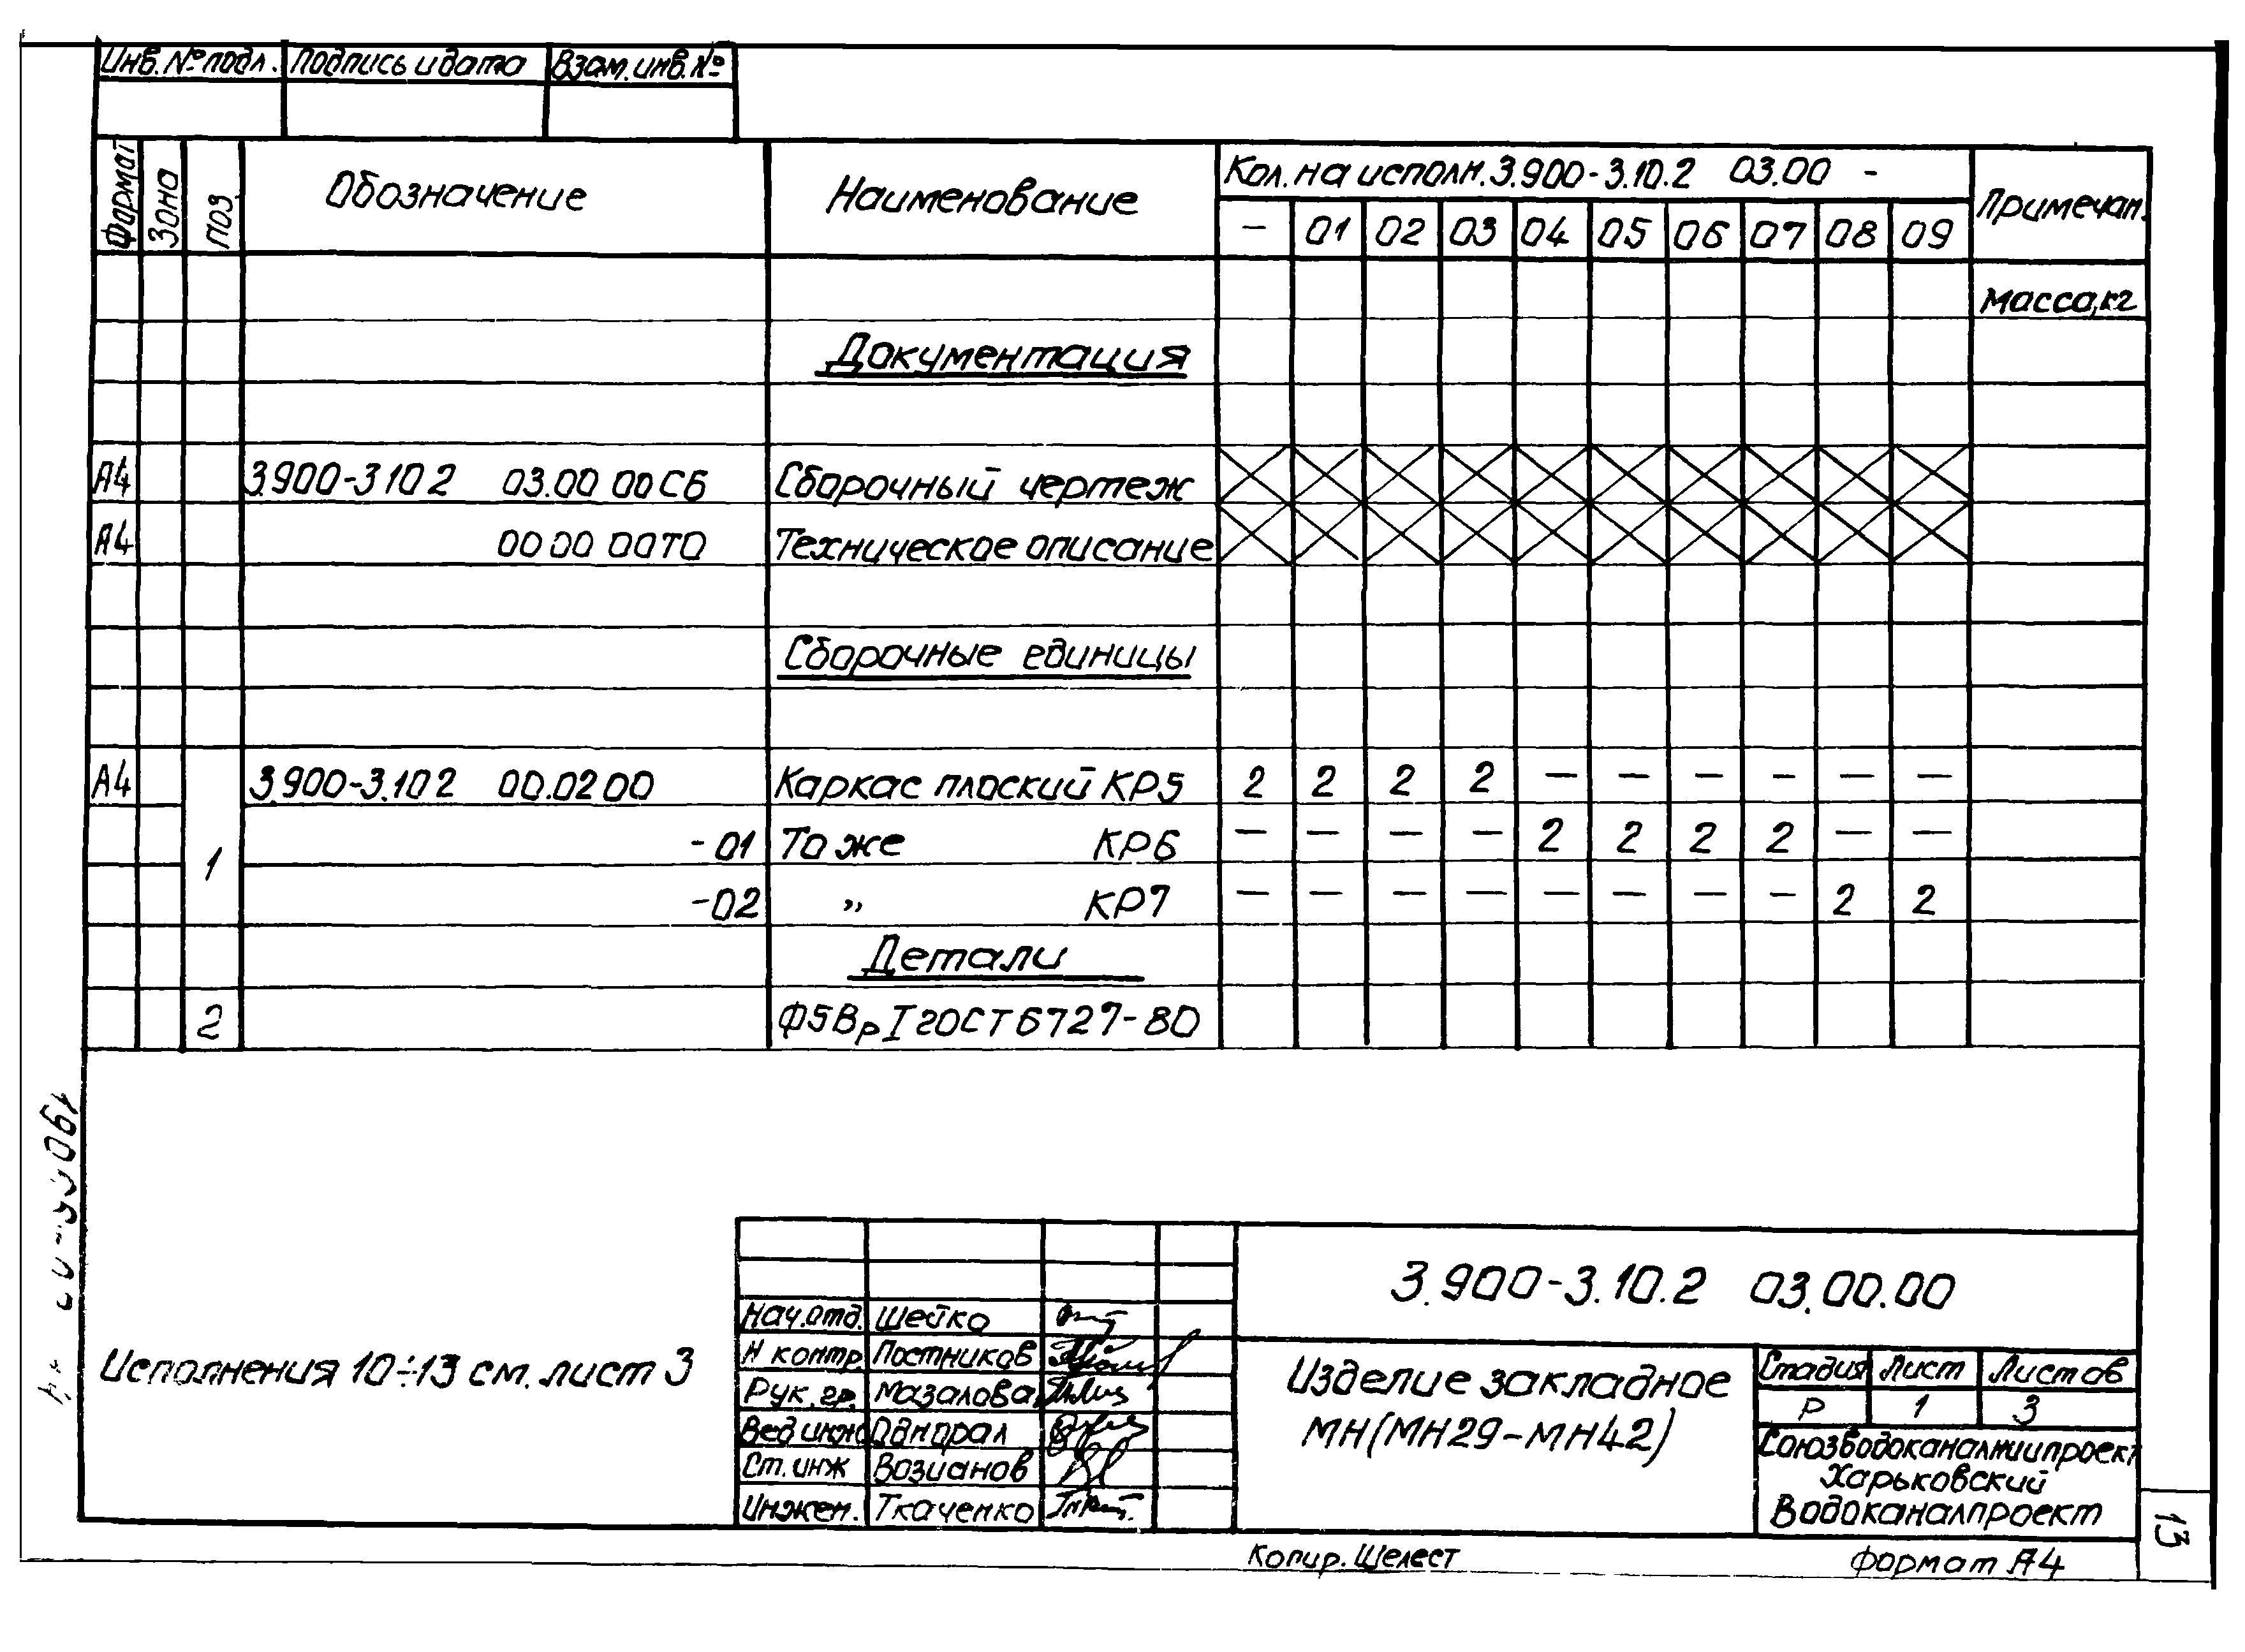 Инв. № подл. Подпись и дата Взам. инв. №
Формат Зона Поз. Обозначение Наименование Кол. на исполн. 3.900-3.10.2 03.00 - Примечан.
- 01 02 03 04 05 06 07 08 09
Масса, кг
Документация
А4 3.900-3 10 2 03.00 00 СБ Сборочный чертеж
А4 00 00 00 ТО Техническое описание
Сборочные единицы
А4 3.900-3.10 2 00.02 00 Каркас плоский КР5 2 2 2 2 — — — — — —
1 -01 То же КР6 — — — — 2 2 2 2 — —
-02 " КР7 — — — — — — — — 2 2
Детали
2 Ф5ВрI ГОСТ 6727-80
Исполнения 10÷13 см. лист 3
3.900-3.10.2 03.00.00
Нач. отд. Шейко
Н контр Постников
Рук. гр. Мазалова
Вед инж Однорал
Ст. инж Возианов
Инжен. Ткаченко
Изделие закладное
МН (МН29-МН42)
Стадия Лист Листов
Р 1 3
Союзводоканалниипроект
Харьковский
Водоканалпроект
13
Копир. Щелест
Формат А4